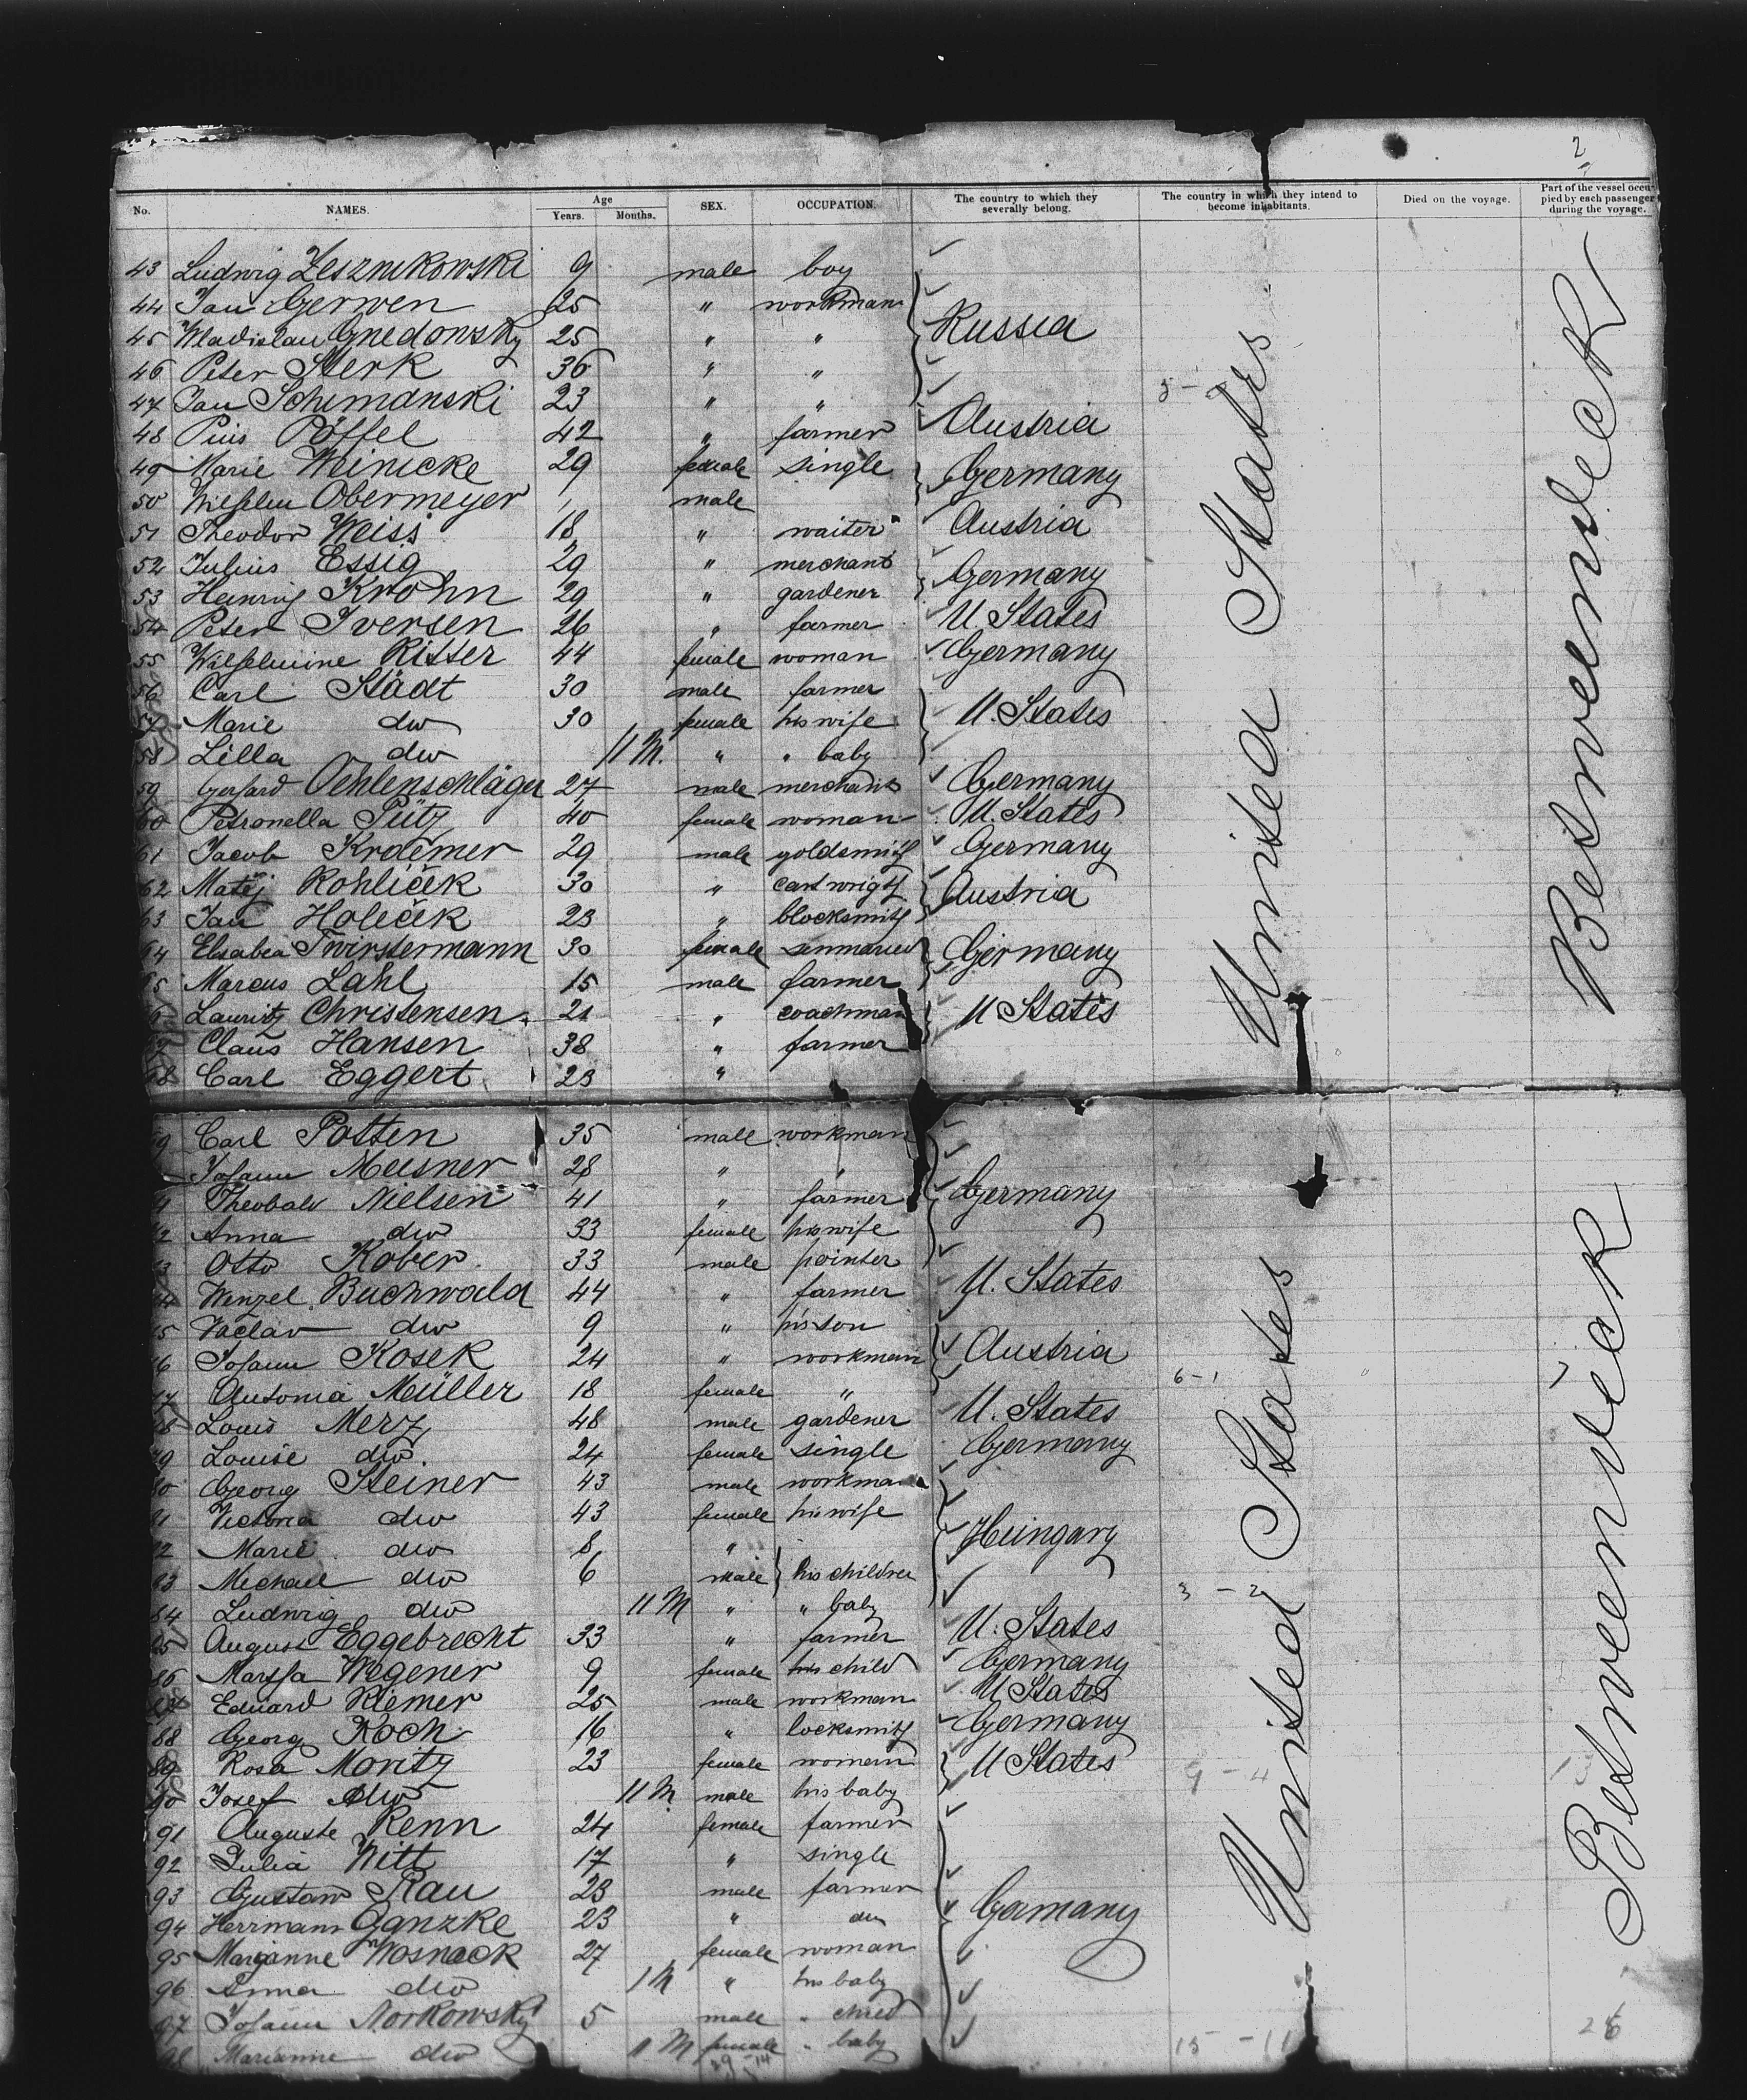 2
No. NAMES. Age Years. Months. SEX. OCCUPATION. The country to which they severally belong. The country in which they intend to become inhabitants. Died on the voyage. Part of the vessel occupied by each passenger during the voyage.
43 Ludwig Lesznikowski 9 male boy
44 Jan Gerwen 25 " workman
45 Wladislau Gnedowsky 25 " " Russia
46 Peter Sterk 36 " "
47 Jan Schimanski 23 " "
48 Pius Pöffel 42 " farmer Austria
49 Marie Weinicke 29 female single Germany
50 Wilhelm Obermeyer " male
51 Theodor Weiss 18 " waiter Austria
52 Julius Essig 29 " merchant Germany
53 Heinrich Krohn 29 " gardener
54 Peter Iversen 26 " farmer U. States
55 Wilhelmine Ritter 44 female woman Germany
56 Carl Städt 30 male farmer
57 Marie do 30 female his wife U. States
58 Lilla do 11 M. " " baby
59 Gerhard Oehlenschläger 27 male merchant Germany
60 Petronella Pütz 40 female woman U. States
61 Jacob Kraemer 29 male goldsmith Germany
62 Matěj Rohliček 30 " cartwright Austria
63 Jan Holeček 23 " blocksmith
64 Elsabea Twirstermann 30 female Germany
65 Marcus Lahl 15 male farmer
66 Lauritz Christensen 21 " coachman U States
67 Claus Hansen 38 " farmer
68 Carl Eggert 23 "
United States
Betweendeck
69 Carl Potten 35 male workman
Johann Meisner 28 " "
71 Theobald Nielsen 41 " farmer Germany
72 Anna do 33 female his wife
73 Otto Kober 33 male painter
74 Wenzel Buchwald 44 " farmer U. States
75 Vaclav do 9 " his son
76 Johann Kosek 24 " workman Austria
77 Antonia Müller 18 female "
78 Louis Merz 48 male gardener U. States
79 Louise do 24 female single Germany
80 Georg Steiner 43 male workman
81 Victoria do 43 female his wife
82 Marie do 8 " Hungary
83 Michael do 6 male his children
84 Ludwig do 11 M " " baby
85 August Eggebrecht 33 " farmer U. States
86 Martha Wegener 9 female his child Germany
87 Eduard Riemer 25 male workman U States
88 Georg Koch 16 " locksmith Germany
89 Rosa Moritz 23 female woman U States
90 Josef do 11 M male his baby
91 Auguste Renn 24 female farmer
92 Julia Witt 17 " single
93 Gustav Rau 23 male farmer
94 Herrmann Ganzke 23 " do Germany
95 Marianne Wosnack 27 female woman
96 Anna do 1 M " his baby
97 Johann Norkowsky 5 male " child
98 Marianne do 11 M female " baby
United States
Betweendeck
5 -
6 - 1
3 - 2
9 - 4
15 - 11